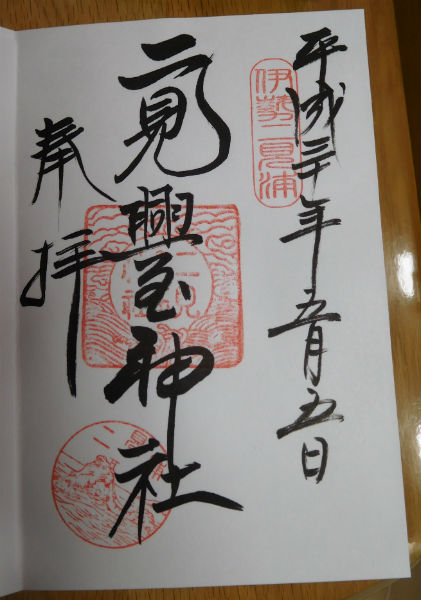 平成三十年五月五日
伊勢二見浦
二見興玉神社
奉拝